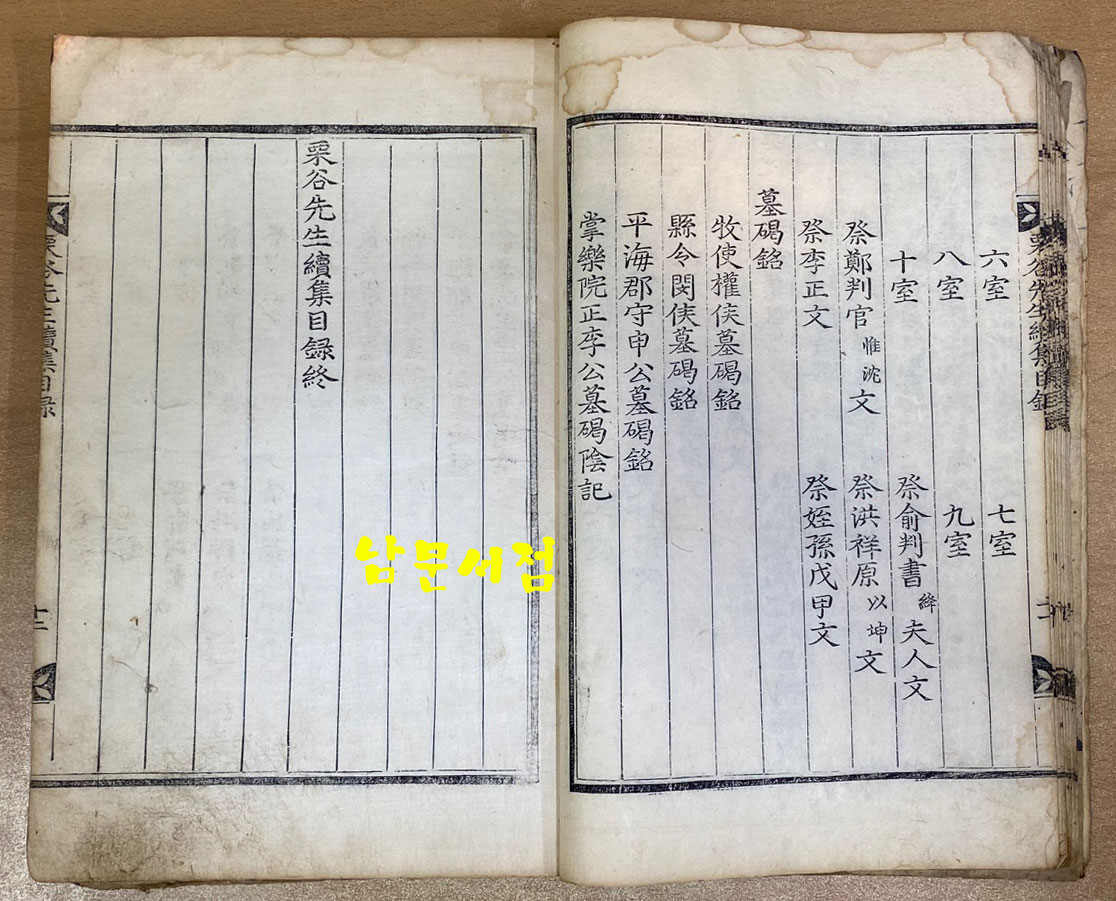 栗谷先生續集目錄
六室 七室
八室 九室
十室 祭俞判書絳夫人文
祭鄭判官惟沈文 祭洪祥原以坤文
祭李正文 祭姪孫戊甲文
墓碣銘
牧使權侯墓碣銘
縣令閔侯墓碣銘
平海郡守申公墓碣銘
掌樂院正李公墓碣陰記
栗谷先生續集目録終
栗谷先生續集目录
十二
남문서점